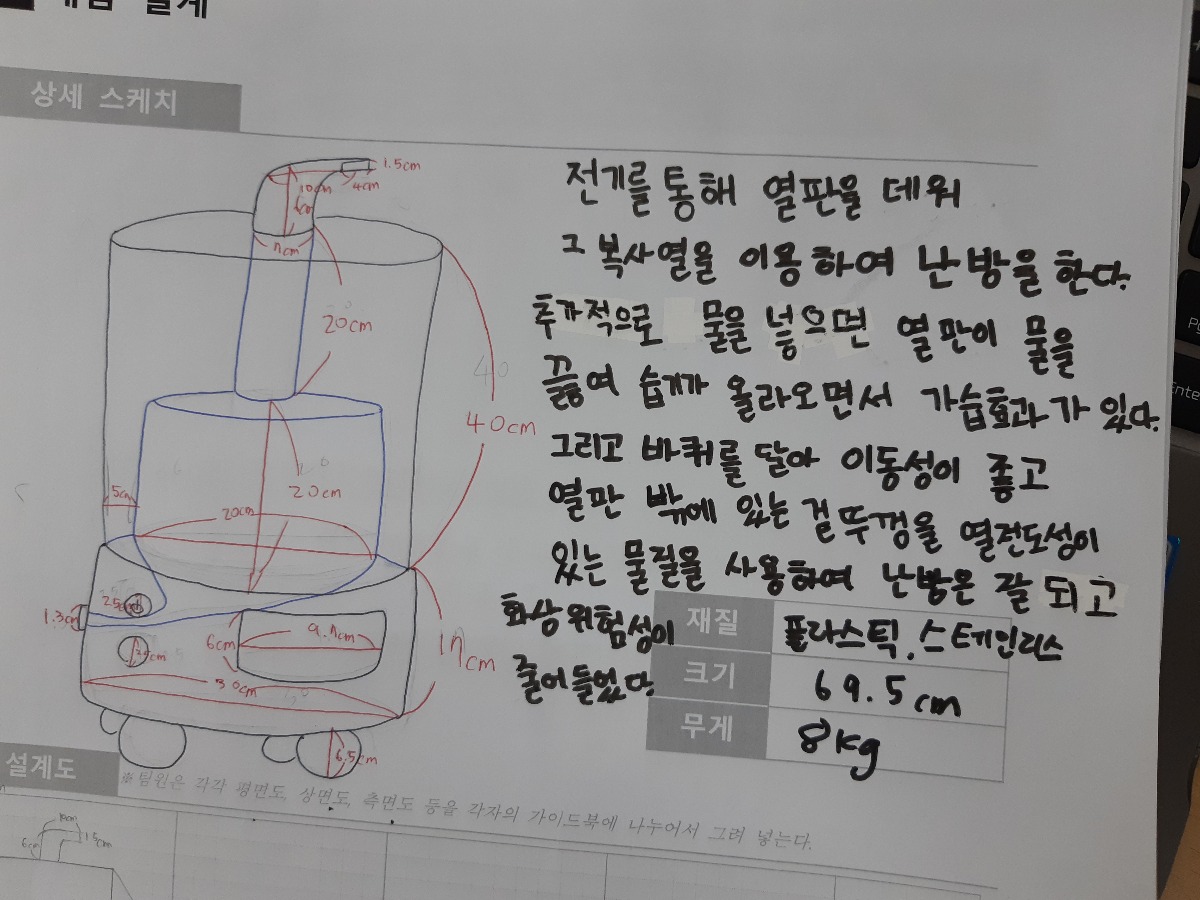 제품 설계
상세 스케치
1.5cm
10cm
4cm
6cm
7cm
20cm
40
40cm
20cm
5cm
20cm
2.5cm
1.3cm
6cm
9.7cm
17cm
30cm
6.5cm
전기를 통해 열판을 데워
그 복사열을 이용하여 난방을 한다.
추가적으로 물을 넣으면 열판이 물을
끓여 습기가 올라오면서 가습효과가 있다.
그리고 바퀴를 달아 이동성이 좋고
열판 밖에 있는 겉뚜껑을 열전도성이
있는 물질을 사용하여 난방은 잘 되고
화상위험성이
줄어들었다.
재질 플라스틱, 스테인리스
크기 69.5cm
무게 8kg
설계도
※팀원은 각각 평면도, 상면도, 측면도 등을 각자의 가이드북에 나누어서 그려 넣는다.
10cm
6cm
1.5cm
Enter